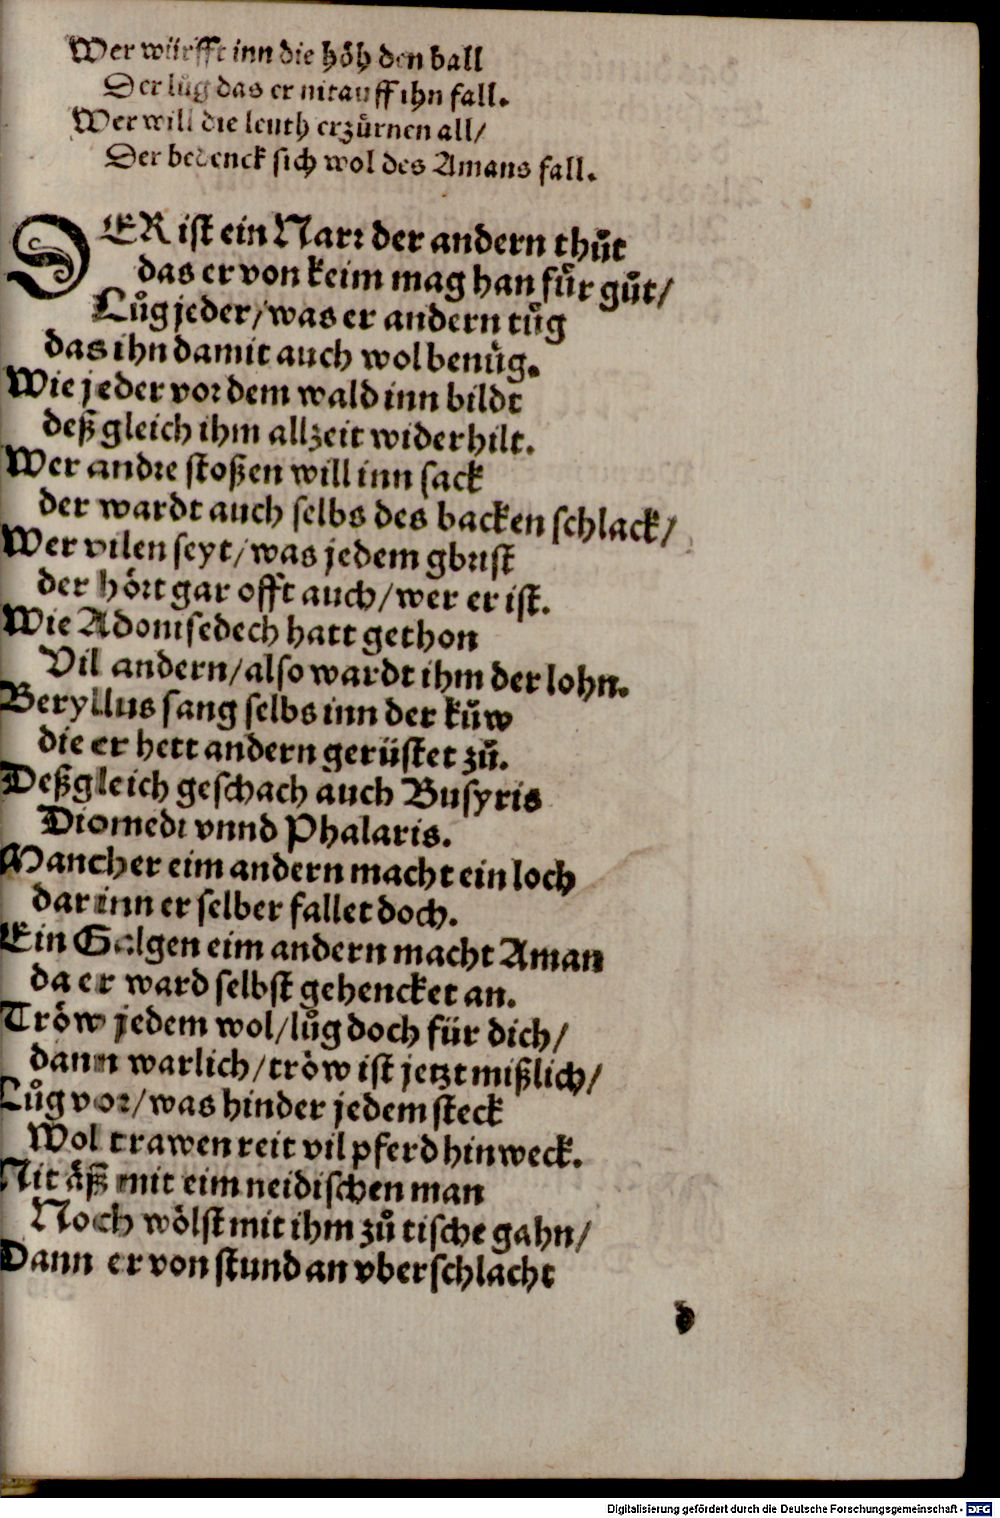 Wer würfft inn die höh den ball
Der lůg das er nit auff ihn fall.
Wer will die leuth erzürnen all/
Der bedenck sich wol des Amans fall.
DER ist ein Narr der andern thůt
das er von keim mag han für gůt/
Lůg jeder/was er andern tůg
das ihn damit auch wol benůg.
Wie jeder vor dem wald inn bildt
deß gleich ihm allzeit widerhilt.
Wer andre stoßen will inn sack
der wardt auch selbs des backen schlack/
Wer vilen seyt/was jedem gbrist
der hört gar offt auch/wer er ist.
Wie Adonisedech hatt gethon
Vil andern/also wardt ihm der lohn.
Beryllus sang selbs inn der kůw
die er hett andern gerüstet zů.
Deßgleich geschach auch Busyris
Diomedi vnnd Phalaris.
Mancher eim andern macht ein loch
dar inn er selber fallet doch.
Ein Galgen eim andern macht Aman
da er ward selbst gehencket an.
Tröw jedem wol/lůg doch für dich/
dann warlich/tröw ist jetzt mißlich/
Lůg vor/was hinder jedem steck
Wol trawen reit vil pferd hinweck.
Nit äß mit eim neidischen man
Noch wölst mit ihm zů tische gahn/
Dann er von stund an vberschlacht
d
Digitalisierung gefördert durch die Deutsche Forschungsgemeinschaft - DFG